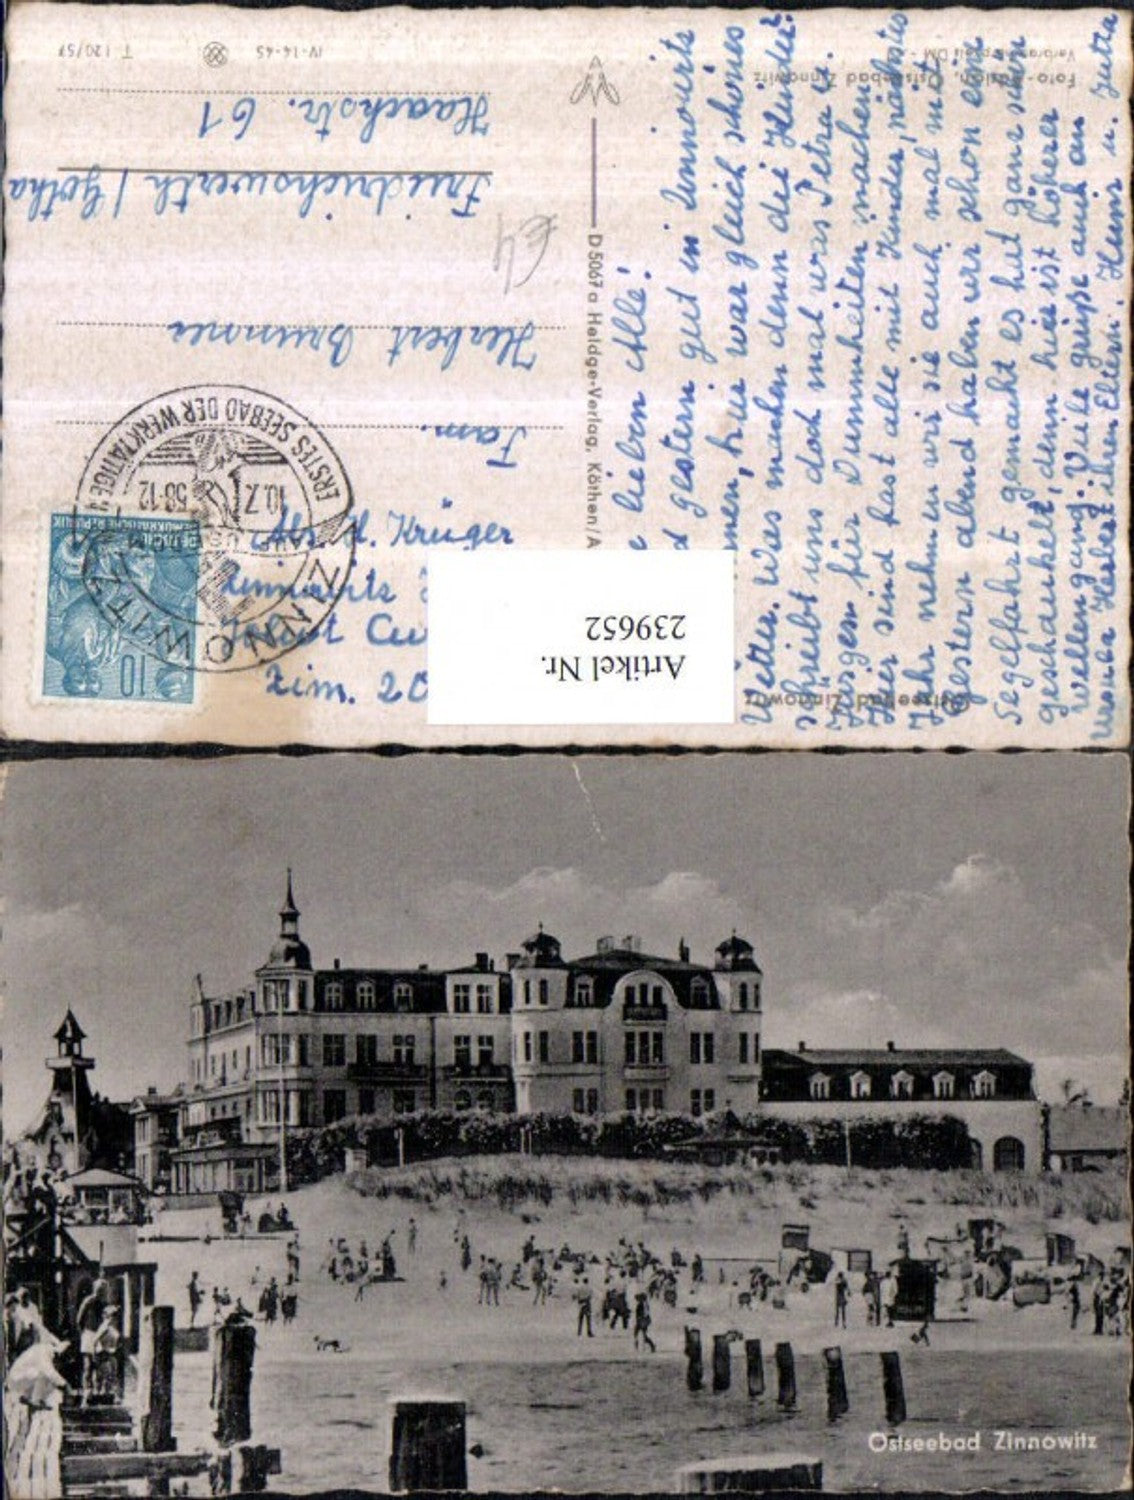 Ostseebad Zinnowitz
Foto-Edition, Ostseebad Zinnowitz
Verbraucherpreis DM -
lieben Alle!
gestern gut in Zinnowitz
hier war gleich schönes
Wetter. Was machen denn die Kinder.
schreibt uns doch mal was Petra u.
Jürgen für Dummheiten machen.
Hier sind fast alle mit Kinder, nächstes
Jahr nehmen wir sie auch mal mit.
Gestern abend haben wir schon eine
Segelfahrt gemacht es hat ganz schön
geschaukelt, denn hier ist höherer
Wellengang. Viele Grüße auch an
Herbert ihren Eltern. Heinz u. Jutta
D 5067 a Heldge-Verlag, Köthen/A
Abs. H. Krüger
Zinnowitz
Zim. 20
DEUTSCHE
DEMOKRATISCHE REPUBLIK
10
ZINNOWITZ
AUF USEDOM
10.7.58-12
ERSTES SEEBAD DER WERKTÄTIGEN
Fam.
Herbert Brunner
Friedrichswerth / Gotha
Haackstr. 61
€4
IV-14-45
T 120/57
Artikel Nr.
239652
Ostseebad Zinnowitz